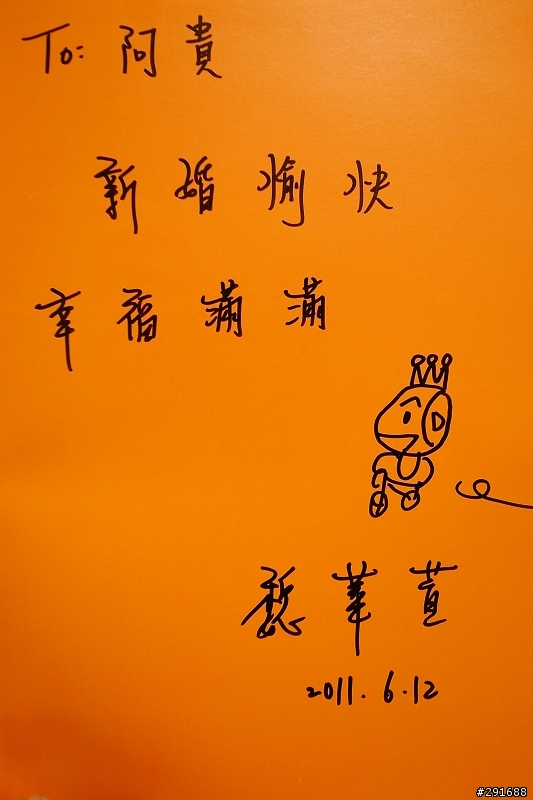 To: 阿貴
新婚愉快
幸福滿滿
華萱
2011.6.12
#291688